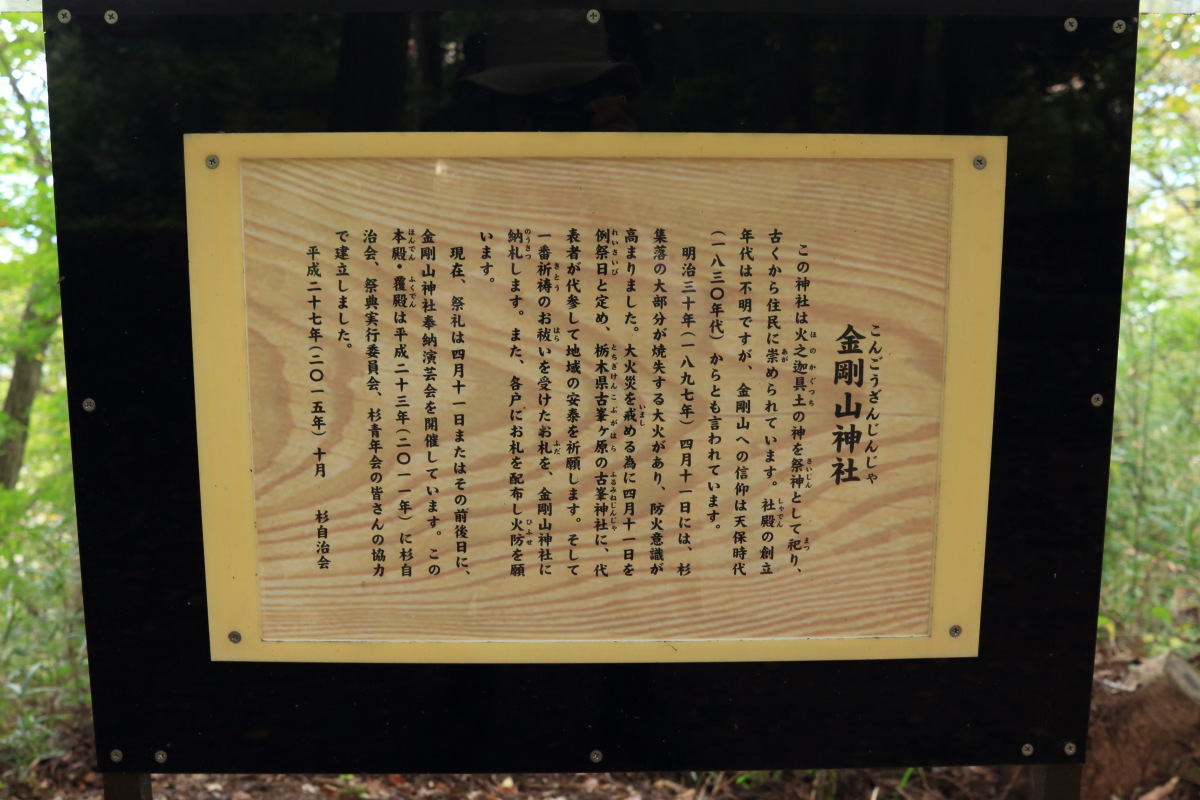 金剛山神社
こんごうざんじんじゃ
この神社は火之迦具土の神を祭神として祀り、
古くから住民に崇められています。社殿の創立
年代は不明ですが、金剛山への信仰は天保時代
(一八三〇年代)からとも言われています。
明治三十年(一八九七年)四月十一日には、杉
集落の大部分が焼失する大火があり、防火意識が
高まりました。大火災を戒める為に四月十一日を
例祭日と定め、栃木県古峯ヶ原の古峯神社に、代
表者が代参して地域の安泰を祈願します。そして
一番祈祷のお祓いを受けたお札を、金剛山神社に
納札します。また、各戸にお札を配布し火防を願
います。
現在、祭礼は四月十一日またはその前後日に、
金剛山神社奉納演芸会を開催しています。この
本殿・覆殿は平成二十三年(二〇一一年)に杉自
治会、祭典実行委員会、杉青年会の皆さんの協力
で建立しました。
平成二十七年(二〇一五年)十月 杉自治会